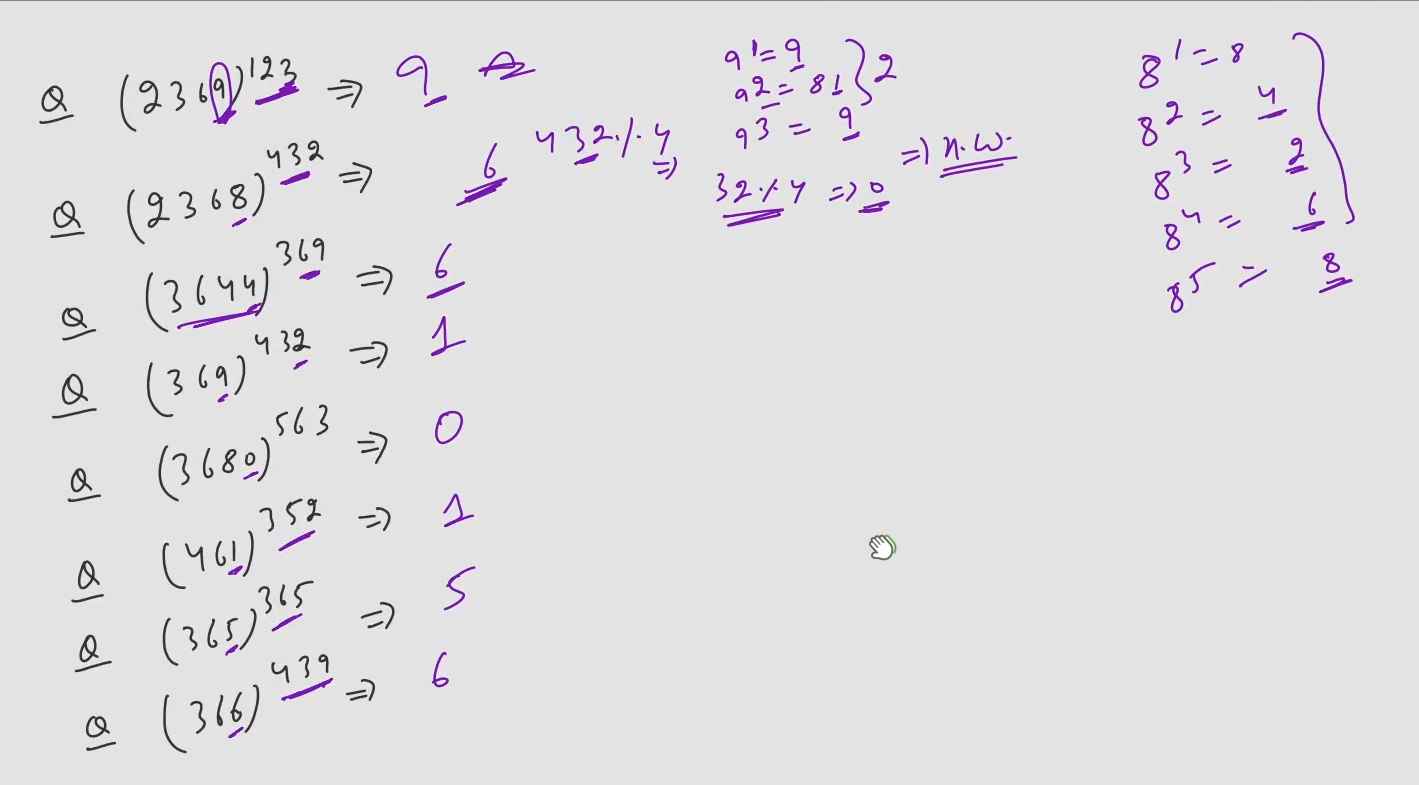 Q (2369)^123 ⇒ 9
Q (2368)^432 ⇒ 6
Q (3644)^369 ⇒ 6
Q (369)^432 ⇒ 1
Q (3680)^563 ⇒ 0
Q (461)^352 ⇒ 1
Q (365)^365 ⇒ 5
Q (366)^439 ⇒ 6
432 % 4 ⇒
9^1 = 9
9^2 = 81 } 2
9^3 = 9
32 % 4 ⇒ 0
⇒ H.W.
8^1 = 8
8^2 = 4
8^3 = 2
8^4 = 6
8^5 = 8